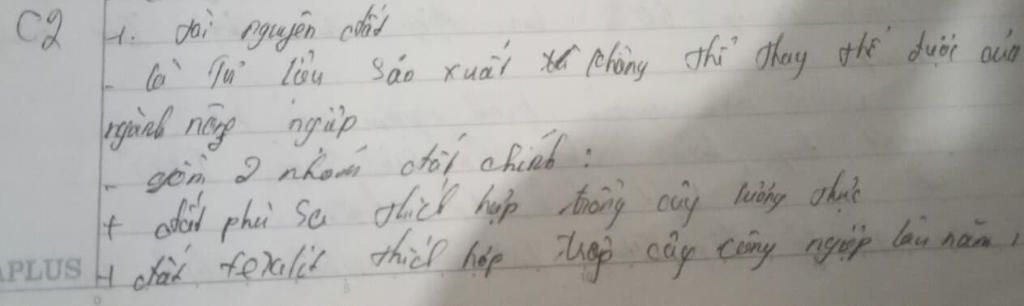 C2 1. tài nguyên đất
- là Tư liệu sảo xuất không thể thay thế được của
ngành nông ngiệp
- gồm 2 nhóm đất chính:
+ đất phù Sa thích hợp trồng cây lương thực
APLUS + đất feralit thích hợp trồng cây công ngiệp lâu năm,